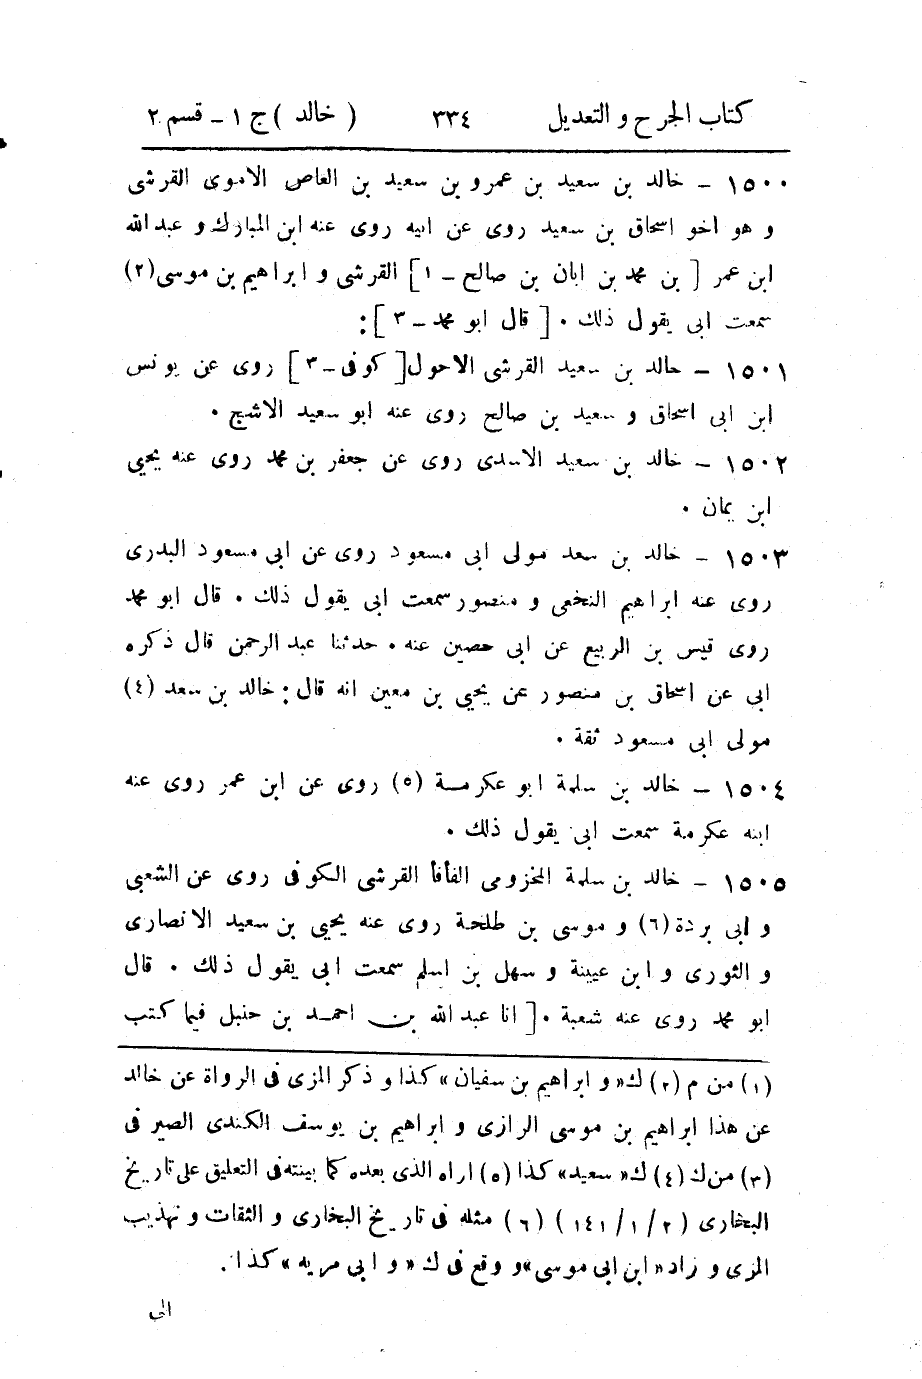 كتاب الجرح و التعديل ٣٣٤ ( خالد ) ج ١ - قسم ٢
١٥٠٠ - خالد بن سعيد بن عمرو بن سعيد بن العاص الاموى القرشى
و هو اخو اسحاق بن سعيد روى عن ابيه روى عنه ابن المبارك و عبد الله
ابن عمر [ بن محمد بن ابان بن صالح - ١ ] القرشى و ابراهيم بن موسى (٢)
سمعت ابى يقول ذلك . [ قال ابو محمد - ٣ ] :
١٥٠١ - خالد بن سعيد القرشى الاحول [ كوفى - ٣ ] روى عن يونس
ابن ابى اسحاق و سعيد بن صالح روى عنه ابو سعيد الاشج .
١٥٠٢ - خالد بن سعيد الاسدى روى عن جعفر بن محمد روى عنه يحيى
ابن يمان .
١٥٠٣ - خالد بن سعد مولى ابى مسعود روى عن ابى مسعود البدرى
روى عنه ابراهيم النخعى و منصور سمعت ابى يقول ذلك . قال ابو محمد
روى قيس بن الربيع عن ابى حصين عنه . حدثنا عبد الرحمن قال ذكره
ابى عن اسحاق بن منصور عن يحيى بن معين انه قال : خالد بن سعد (٤)
مولى ابى مسعود ثقة .
١٥٠٤ - خالد بن سلمة ابو عكرمة (٥) روى عن ابن عمر روى عنه
ابنه عكرمة سمعت ابى يقول ذلك .
١٥٠٥ - خالد بن سلمة المخزومى الفأفأ القرشى الكوفى روى عن الشعبى
و ابى بردة (٦) و موسى بن طلحة روى عنه يحيى بن سعيد الانصارى
و الثورى و ابن عيينة و سهل بن اسلم سمعت ابى يقول ذلك . قال
ابو محمد روى عنه شعبة . [ انا عبد الله بن احمد بن حنبل فيما كتب
(١) من م (٢) ك « و ابراهيم بن سفيان » كذا و ذكر المزى فى الرواة عن خالد
عن هذا ابراهيم بن موسى الرازى و ابراهيم بن يوسف الكندى الصير فى
(٣) من ك (٤) ك « سعيد » كذا (٥) اراه الذى بعده كما بينته فى التعليق على تاريخ
البخارى ( ٢ / ١ / ١٤١ ) (٦) مثله فى تاريخ البخارى و الثقات و تهذيب
المزى و زاد « ابن ابى موسى » و وقع فى ك « و ابى مريه » كذا .
الى